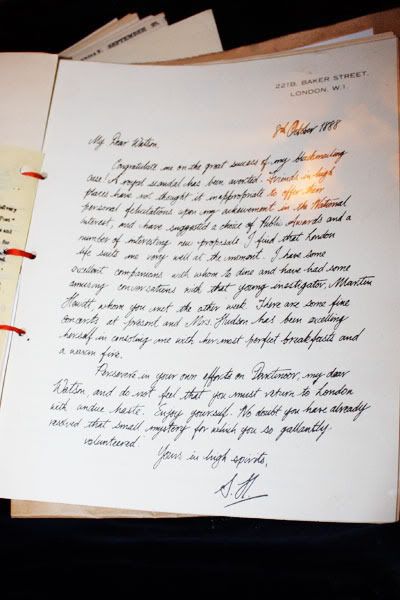 DAY, SEPTEMBER 29,
221B, BAKER STREET,
LONDON, W.1.
8th October 1888
My Dear Watson,
Congratulate me on the great success of my blackmailing
case! A royal scandal has been averted. Friends in high
places have not thought it inappropriate to offer their
personal felicitations upon my achievement in the National
interest, and have suggested a choice of Public Awards and a
number of interesting new proposals. I find that London
life suits me very well at the moment. I have some
excellent companions with whom to dine and have had some
amusing conversations with that young investigator, Martin
Hewitt, whom you met the other week. There are some fine
concerts at present and Mrs. Hudson has been excelling
herself in consoling me with her most perfect breakfasts and
a warm fire.
Persevere in your own efforts on Dartmoor, my dear
Watson, and do not feel that you must return to London
with undue haste. Enjoy yourself. No doubt you have already
resolved that small mystery for which you so gallantly
volunteered.
Yours in high spirits,
S.H